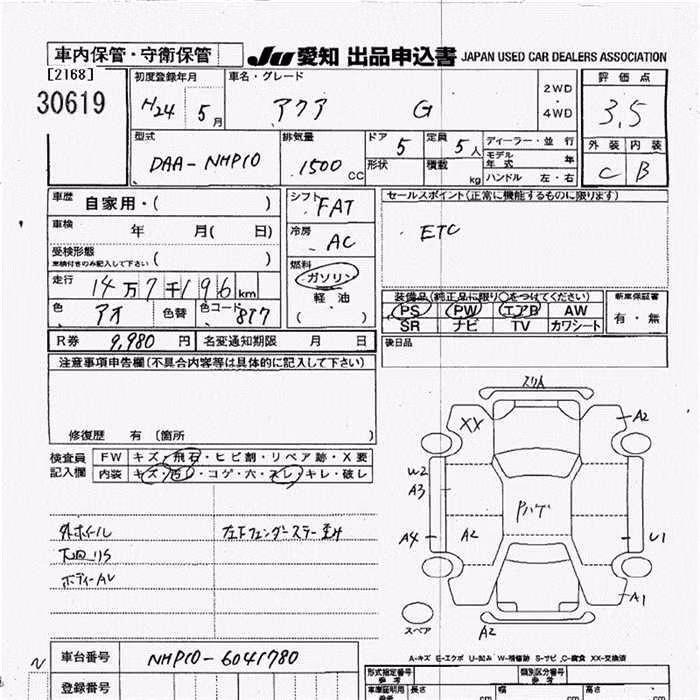 車内保管・守衛保管
JU 愛知 出品申込書 JAPAN USED CAR DEALERS ASSOCIATION
[2168]
30619
初度登録年月 車名・グレード 2WD 評価点
H24 5月 アクア G 4WD 3.5
型式 排気量 ドア 5 定員 5人 ディーラー・並行 外装 内装
DAA-NHP10 1500 CC 形状 積載 kg モデル年式 年 C B
ハンドル 左・右
車歴 自家用・( ) シフト FAT セールスポイント(正常に機能するものに限ります)
車検 年 月( 日) 冷房 AC ETC
受検形態
車検付きのみ記入して下さい ( ) 燃料 ガソリン
走行 14万7千196km 軽油
色 アオ 色替 色コード 8T7 ( )
装備品(純正品に限り○をつけてください) 新車保証書
PS PW エアB AW 有・無
SR ナビ TV カワシート
R券 9,980円 名変通知期限 月 日 後日品
注意事項申告欄(不具合内容等は具体的に記入して下さい)
修復歴 有 〔箇所 )
検査員記入欄 FW キズ・飛石・ヒビ割・リペア跡・X要
内装 キズ・・コゲ・穴・スレ・キレ・破レ
外ホイール
ボディーAU
スリ人
XX A2
W2
A3
Pハゲ
A4 A2 U1
A1
スペア A2
A-キズ E-エクボ U-凹み W-補修跡 S-サビ C-腐食 XX-交換済
車台番号 NHP10-6041780
登録番号
型式指定番号 類別区分番号
参考 参考
長さ cm 幅 cm 高さ cm